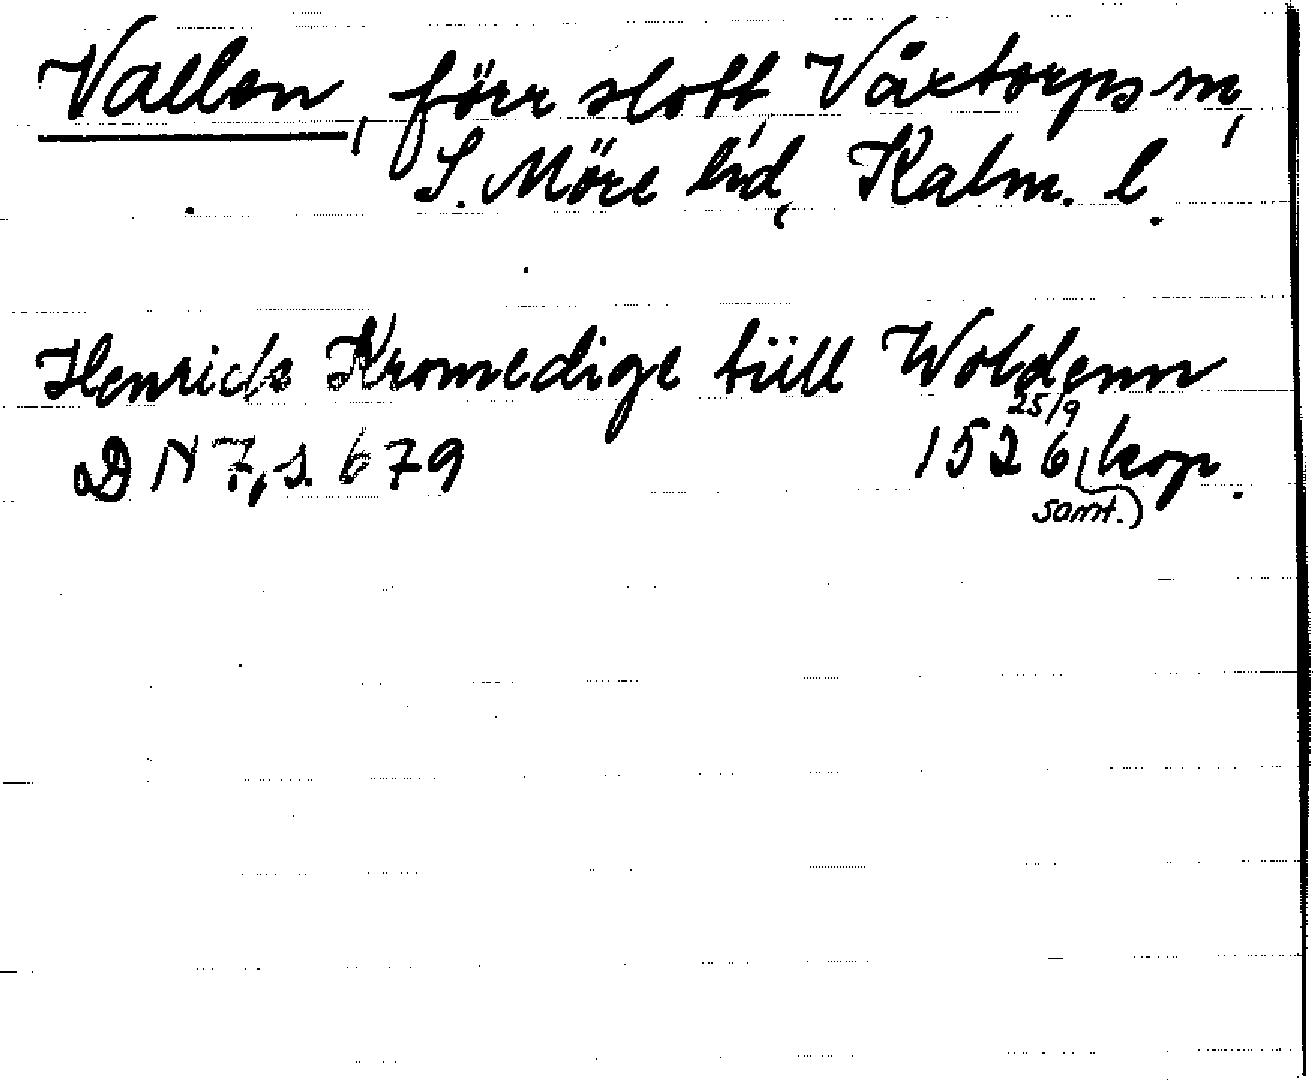 Vallen, förr slott, Våxtorps sn,
S. Möre hd, Kalm. l.
Henrich Kromedige tüll Woldenn
25/9
D N 7, s. 679 1526 kop.
samt.)